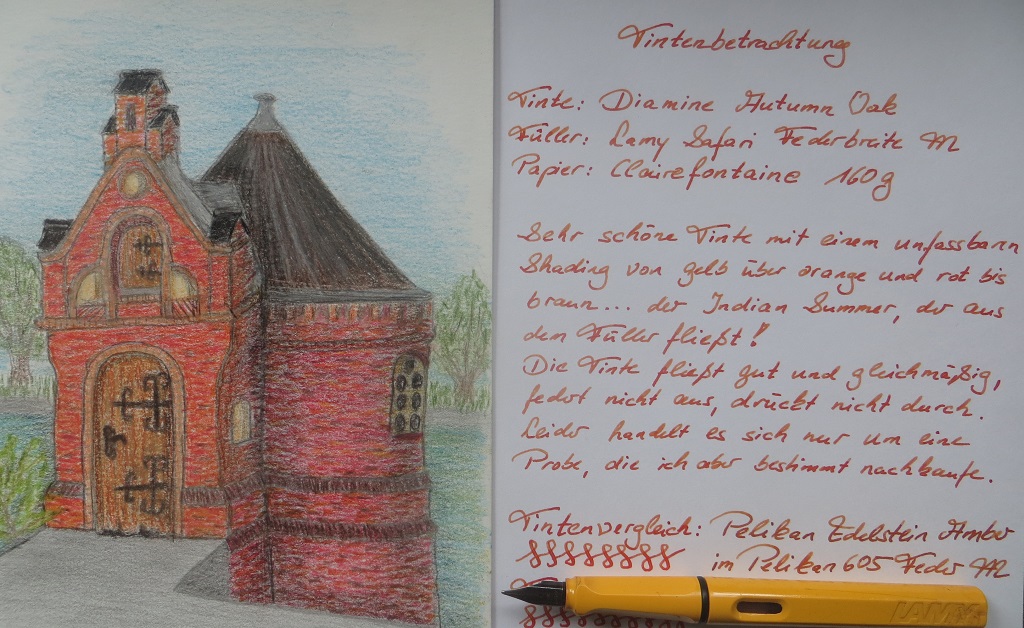 Tintenbetrachtung
Tinte: Diamine Autumn Oak
Füller: Lamy Safari Federbreite M
Papier: Clairefontaine 160g
Sehr schöne Tinte mit einem unfassbarn
Shading von gelb über orange und rot bis
braun... der Indian Summer, der aus
dem Füller fließt!
Die Tinte fließt gut und gleichmäßig,
federt nicht aus, drückt nicht durch.
Leider handelt es sich nur um eine
Probe, die ich aber bestimmt nachkaufe.
Tintenvergleich: Pelikan Edelstein Amber
im Pelikan 605 Feder M
LAMY